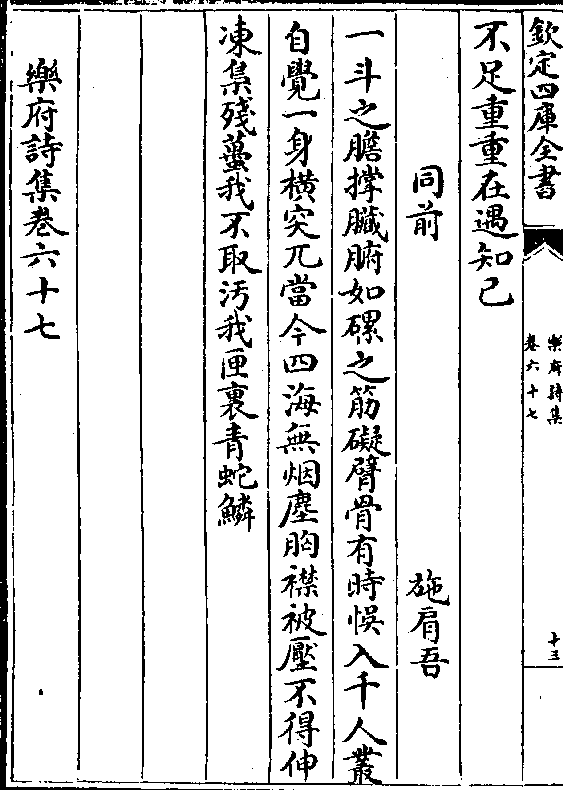 欽定四庫全書
樂府詩集
卷六十七
十三
不足重重在遇知己
同前 施肩吾
一斗之膽撑臟腑如磥之筋礙臂骨有時悞入千人叢
自覺一身横突兀當今四海無烟塵胸襟被壓不得伸
凍梟殘蠆我不取汚我匣裏青蛇鱗
樂府詩集卷六十七